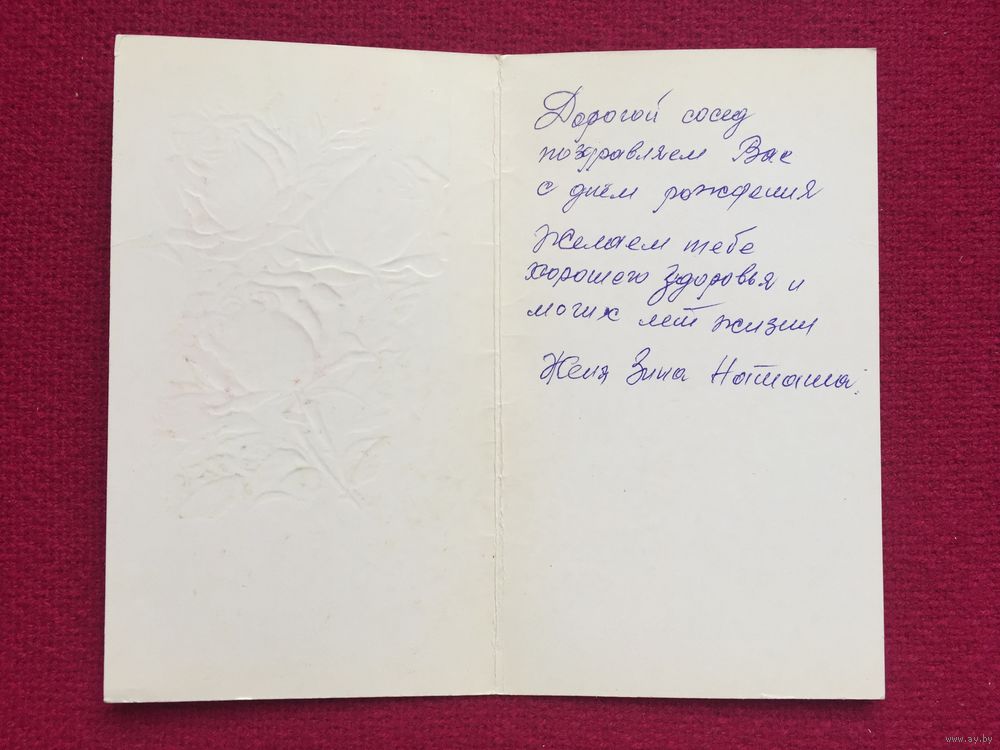 Дорогой сосед
поздравляем Вас
с днём рождения
Желаем тебе
хорошего здоровья и
могих лет жизни
Женя Зина Наташа.
www.ay.by